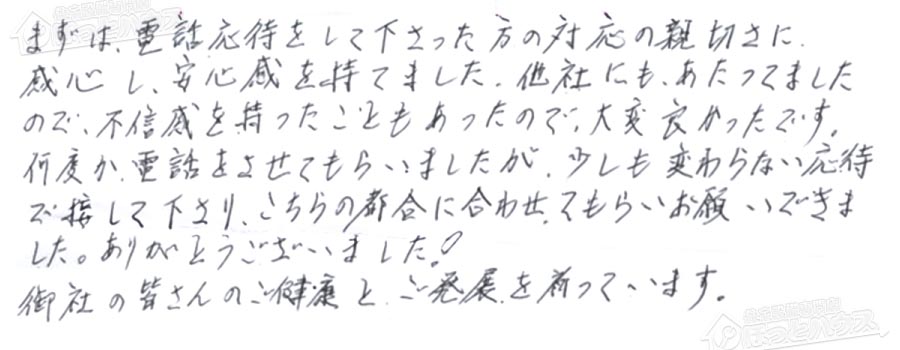 まずは、電話応待をして下さった方の対応の親切さに、
感心し、安心感を持てました。他社にも、あたってました
ので、不信感を持ったこともあったので、大変良かったです。
何度か、電話をさせてもらいましたが、少しも変わらない応待
で接して下さり、こちらの都合に合わせてもらいお願いできま
した。ありがとうございました!
御社の皆さんのご健康と、ご発展を祈っています。
ほっとハウス